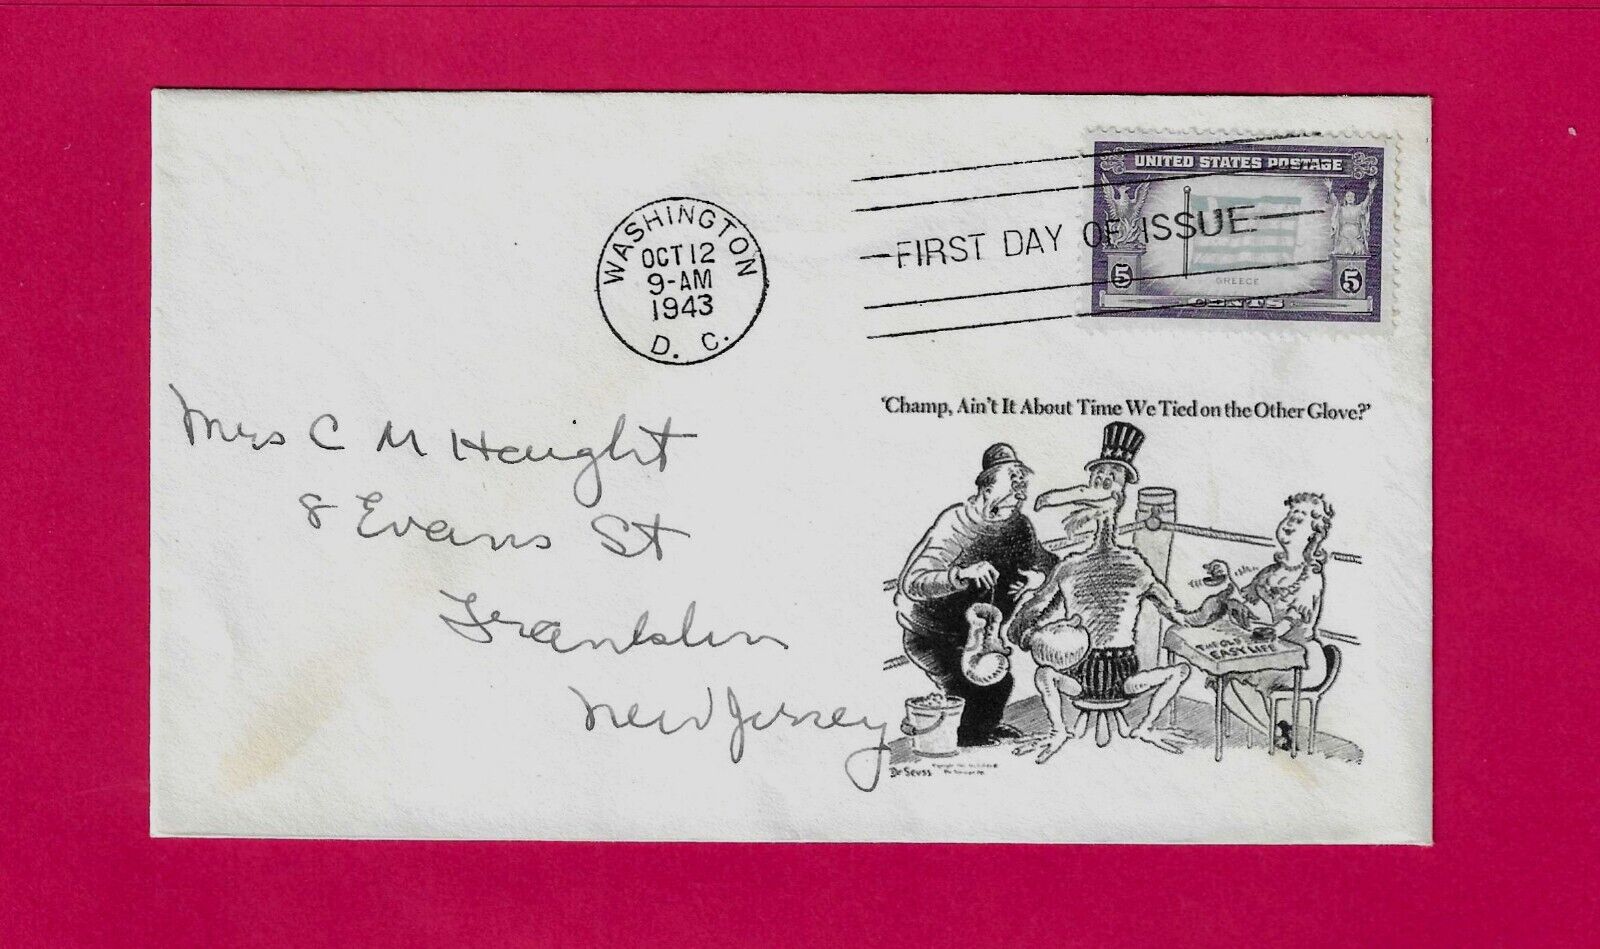 WASHINGTON
OCT 12
9-AM
1943
D. C.
FIRST DAY OF ISSUE
UNITED STATES POSTAGE
GREECE
5 5
CENTS
'Champ, Ain't It About Time We Tied on the Other Glove?'
Mrs C M Haight
8 Evans St
Franklin
New Jersey
THE OLD
EASY LIFE
Dr Seuss